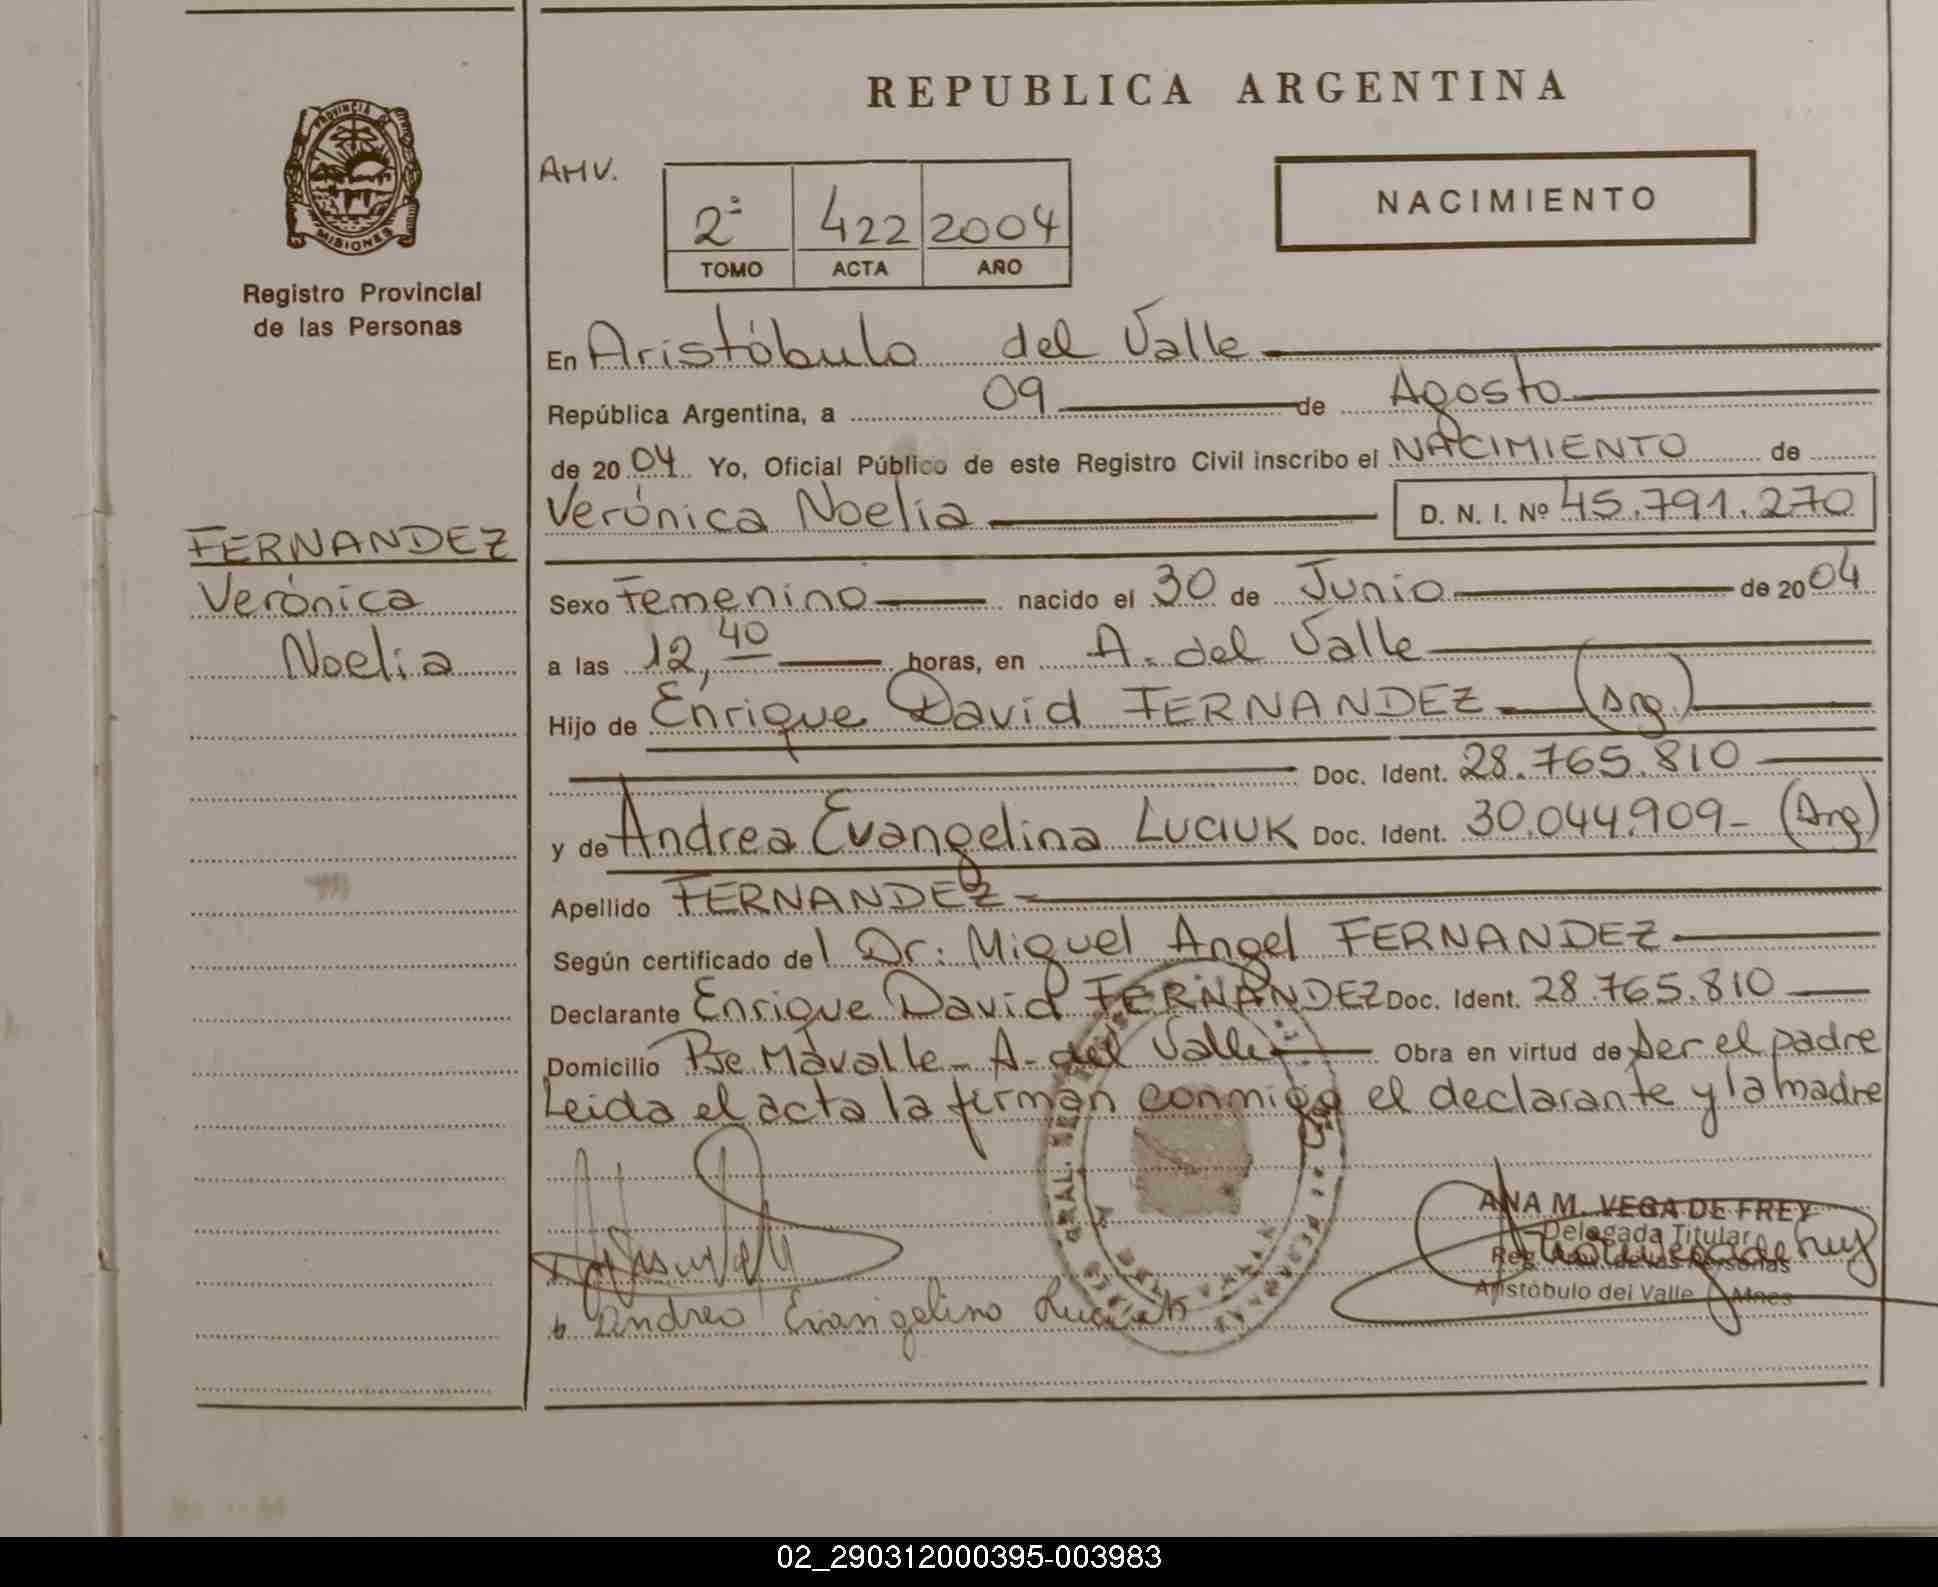 REPUBLICA ARGENTINA
PROVINCIA DE
MISIONES
Registro Provincial
de las Personas
AMV.
2º 422 2004
TOMO ACTA AÑO
NACIMIENTO
En Aristóbulo del Valle
República Argentina, a 09 de Agosto
de 2004 Yo, Oficial Público de este Registro Civil inscribo el NACIMIENTO de
Verónica Noelia D. N. I. Nº 45.791.270
FERNANDEZ
Verónica
Noelia
Sexo Femenino nacido el 30 de Junio de 2004
a las 12,40 horas, en A. del Valle
Hijo de Enrique David FERNANDEZ (Arg.)
Doc. Ident. 28.765.810
y de Andrea Evangelina LUCIUK Doc. Ident. 30.044.909- (Arg)
Apellido FERNANDEZ
Según certificado del Dr: Miguel Angel FERNANDEZ
Declarante Enrique David FERNANDEZ Doc. Ident. 28.765.810
Domicilio Pje Mavalle - A. del Valle Obra en virtud de ser el padre
Leida el acta la firman conmigo el declarante y la madre
ANA M. VEGA DE FREY
Delegada Titular
Reg. de las Personas
Aristóbulo del Valle Mnes
Andrea Evangelina Luciuk
02_290312000395-003983